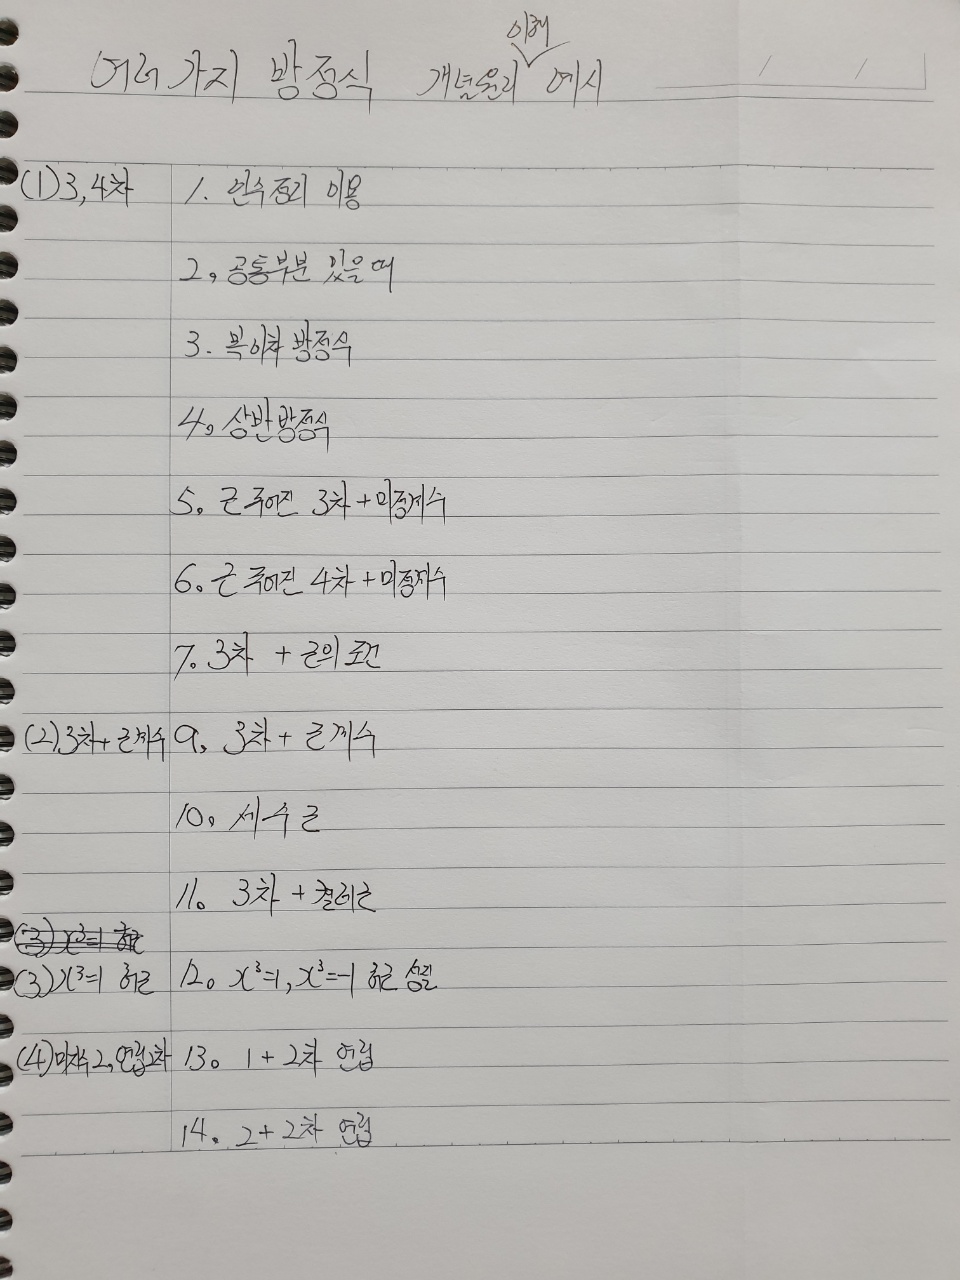 여러 가지 방정식 개념원리 이해 예시
(1) 3, 4차 1. 인수정리 이용
2, 공통부분 있을 때
3. 복이차 방정식
4, 상반방정식
5. 근 주어진 3차 + 미정계수
6. 근 주어진 4차 + 미정계수
7. 3차 + 근의 조건
(2) 3차 + 근계수 9, 3차 + 근계수
10. 세 수 근
11. 3차 + 켤레근
(3) x³=1 허근
(3) x³=1 허근 12. x³=1, x³=-1 허근 성질
(4) 미지수 2, 연립2차 13. 1+2차 연립
14. 2+2차 연립